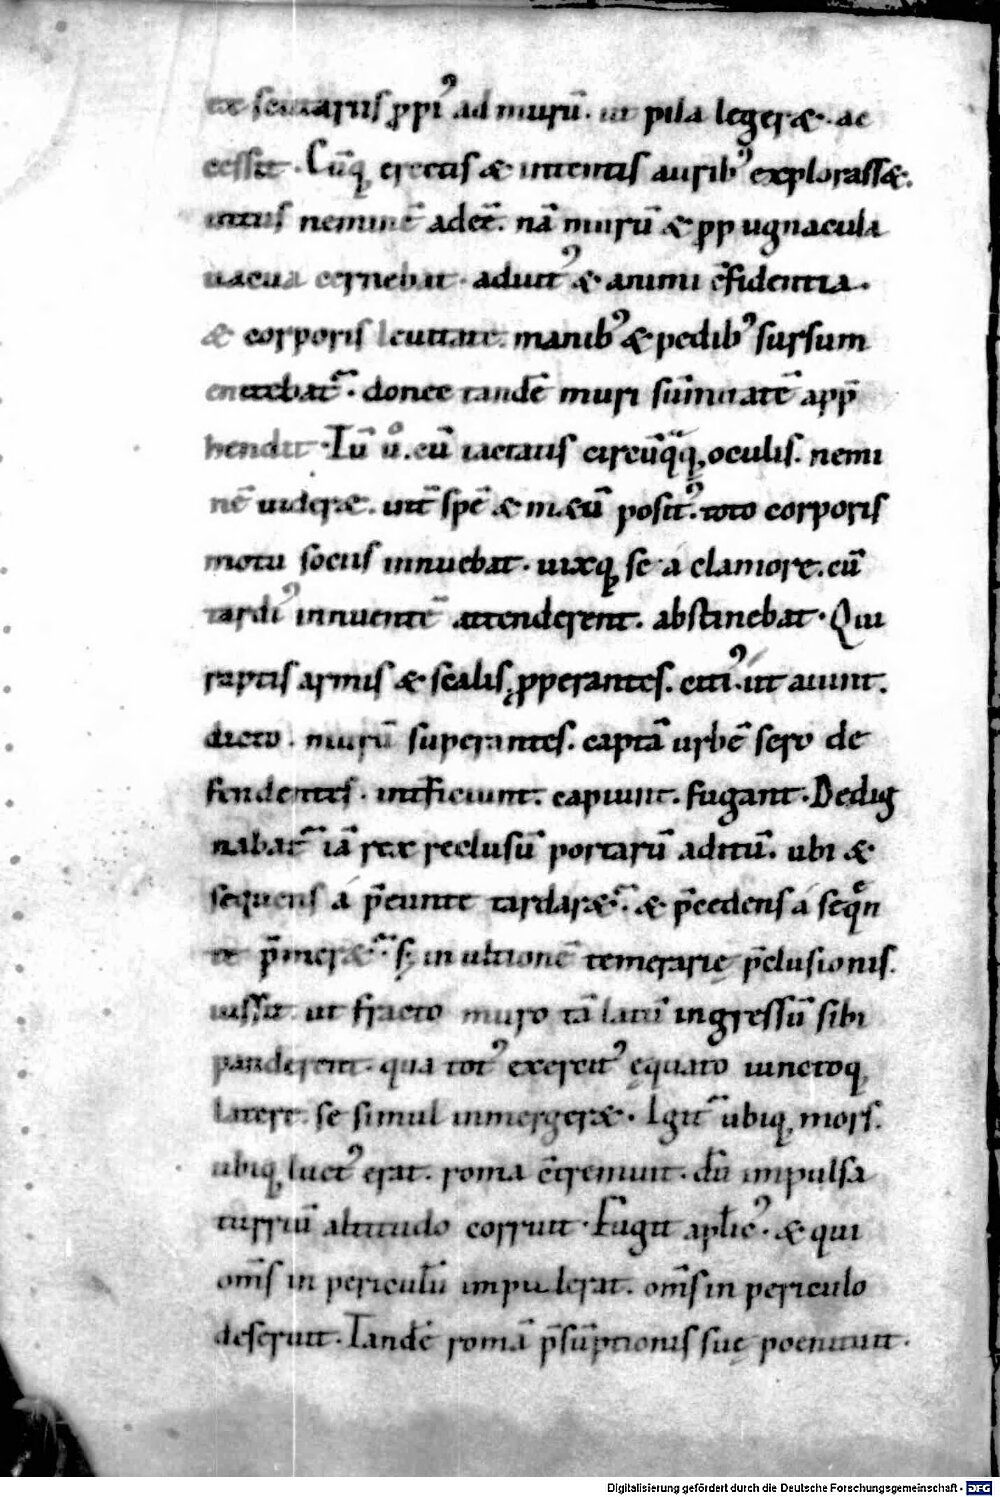 ex scutariis ꝓpi᷒ ad murū. ut pila legeræ. ac
cessit. Cūq; erectis & intentis aurib᷒ explorassæ.
intus neminē adeē. nā murū & ꝓpugnacula
uacua cernebat. aducit᷒ & animi c̄fidentia.
& corporis leuitate. manib᷒ & pedib᷒ sursum
enitebat᷑. donec tandē muri sūmitatē app̄
hendit. Tū uͦ. cū iactatis circūq̄q; oculis. nemi
nē uideræ. int̄ spē & mætū posit᷒. toto corporis
motu socus innuebat. uixq; se a clamore. cū
tardi᷒ innuentē attenderent. abstinebat. Qui
raptis armis & scalis ꝓperantes. citi᷒. ut aiunt.
dicto. murū superantes. captā urbē sero de
fendentes. int̄ficiunt. capiunt. fugant. Dedig
nabat᷑ iā rex reclusū portarū aditū. ubi &
sequens á p̄eunte tardaræ᷑. & p̄cedens á seqͤn
te p̄meræ᷑. sȩ in ultionē temerarię p̄clusionis.
iussit ut fracto muro tā latū ingressū sibi
panderent. qua tot᷒ exercit᷒ ęquato iunctoq;
latere. se simul inmergeræ. Igit᷑ ubiq; mors.
ubiq; luct᷒ erat. roma c̄tremuit. dū impulsa
turriū altitudo corruit. Fugit apl̄ic᷒. & qui
om̄s in periculū impulerat. om̄s in periculo
deseruit. Tandē romā p̄sūptionis suę poenituit.
Digitalisierung gefördert durch die Deutsche Forschungsgemeinschaft - DFG